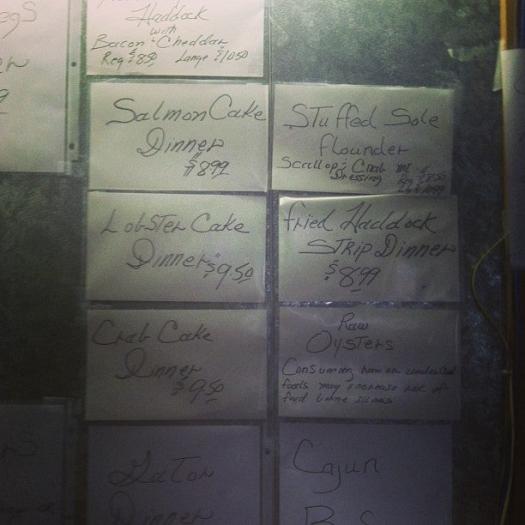 egs
Haddock
with
Bacon Cheddar
Reg $8.50 Large $10.50
Salmon Cake
Dinner
$8.99
Stuffed Sole
flounder
Scallop & Crab
Dressing
Lobster Cake
Dinner $9.50
fried Haddock
STRIP Dinner
$8.99
Crab Cake
Dinner
$9.50
Raw
Oysters
Consuming raw or undercooked
foods may increase risk of
food borne illness
Gator
Dinner
Cajun